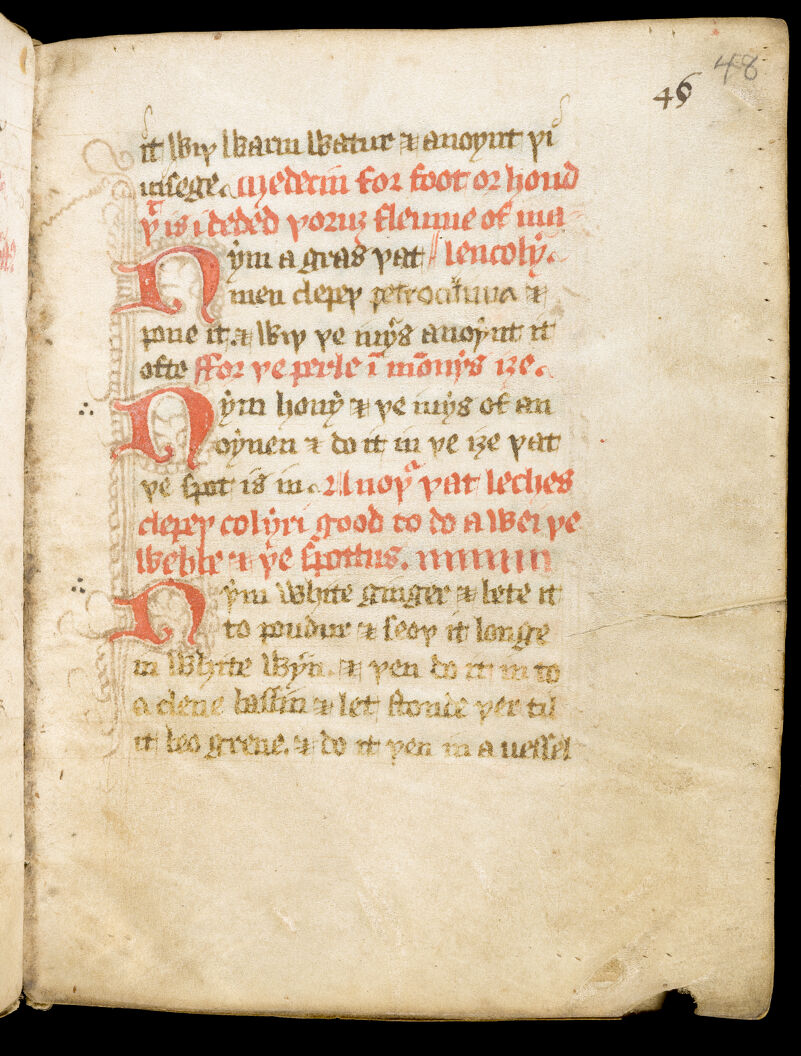 48
46
it wiþ warm watur & anoynt þi
uisege. Medecin for foot or hond
þat is i deded þoruȝ fleume of ma-
Nẏm a gras þat // lencolẏ.
men clepeþ petrocilliua &
pone it. & wiþ þe iuẏs anoẏnt it
ofte ffor þe perle ī mōnẏs iȝe.
Nẏm honẏ & þe iuẏs of an
oẏnen & do it in þe iȝe þat
þe spot is in. Anoþar þat leches
clepeþ colẏri good to do awei þe
webbe & þe spottus.
Nẏm white ginger & lete it
to poudur & seoþ it longe
in white wẏn. & þen do it in to
a clene bassin & let stonde þer til
it beo grene. & do it þen in a uessel